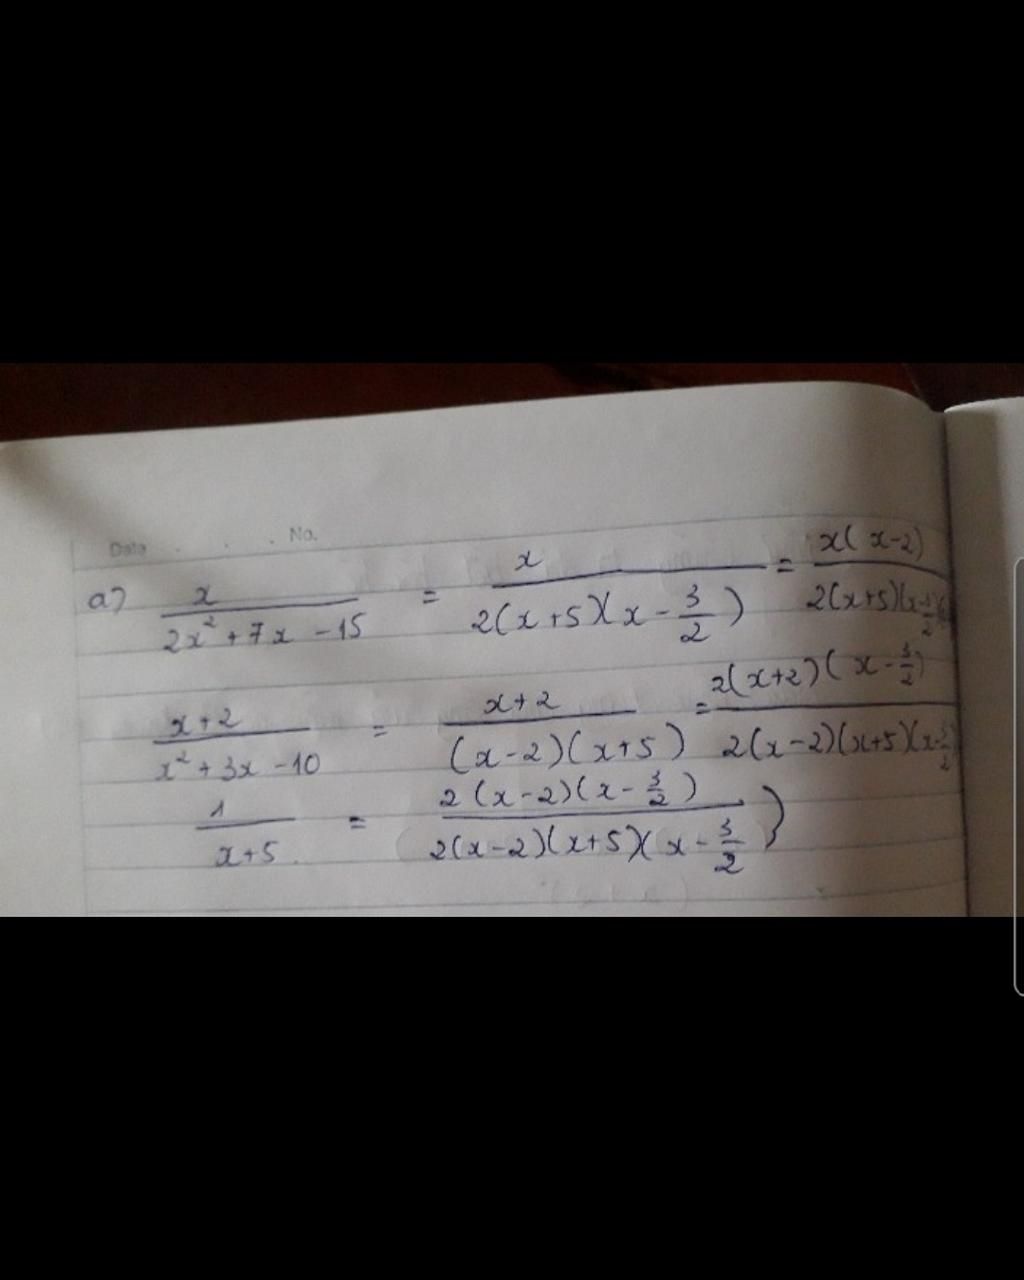 Date . . . No.
a) x/(2x²+7x-15) = x/(2(x+5)(x-3/2)) = x(x-2)/(2(x+5)(x-3/2)
(x+2)/(x²+3x-10) = (x+2)/((x-2)(x+5)) = 2(x+2)(x-3/2)/(2(x-2)(x+5)(x-3/2)
1/(x+5) = 2(x-2)(x-3/2)/(2(x-2)(x+5)(x-3/2))